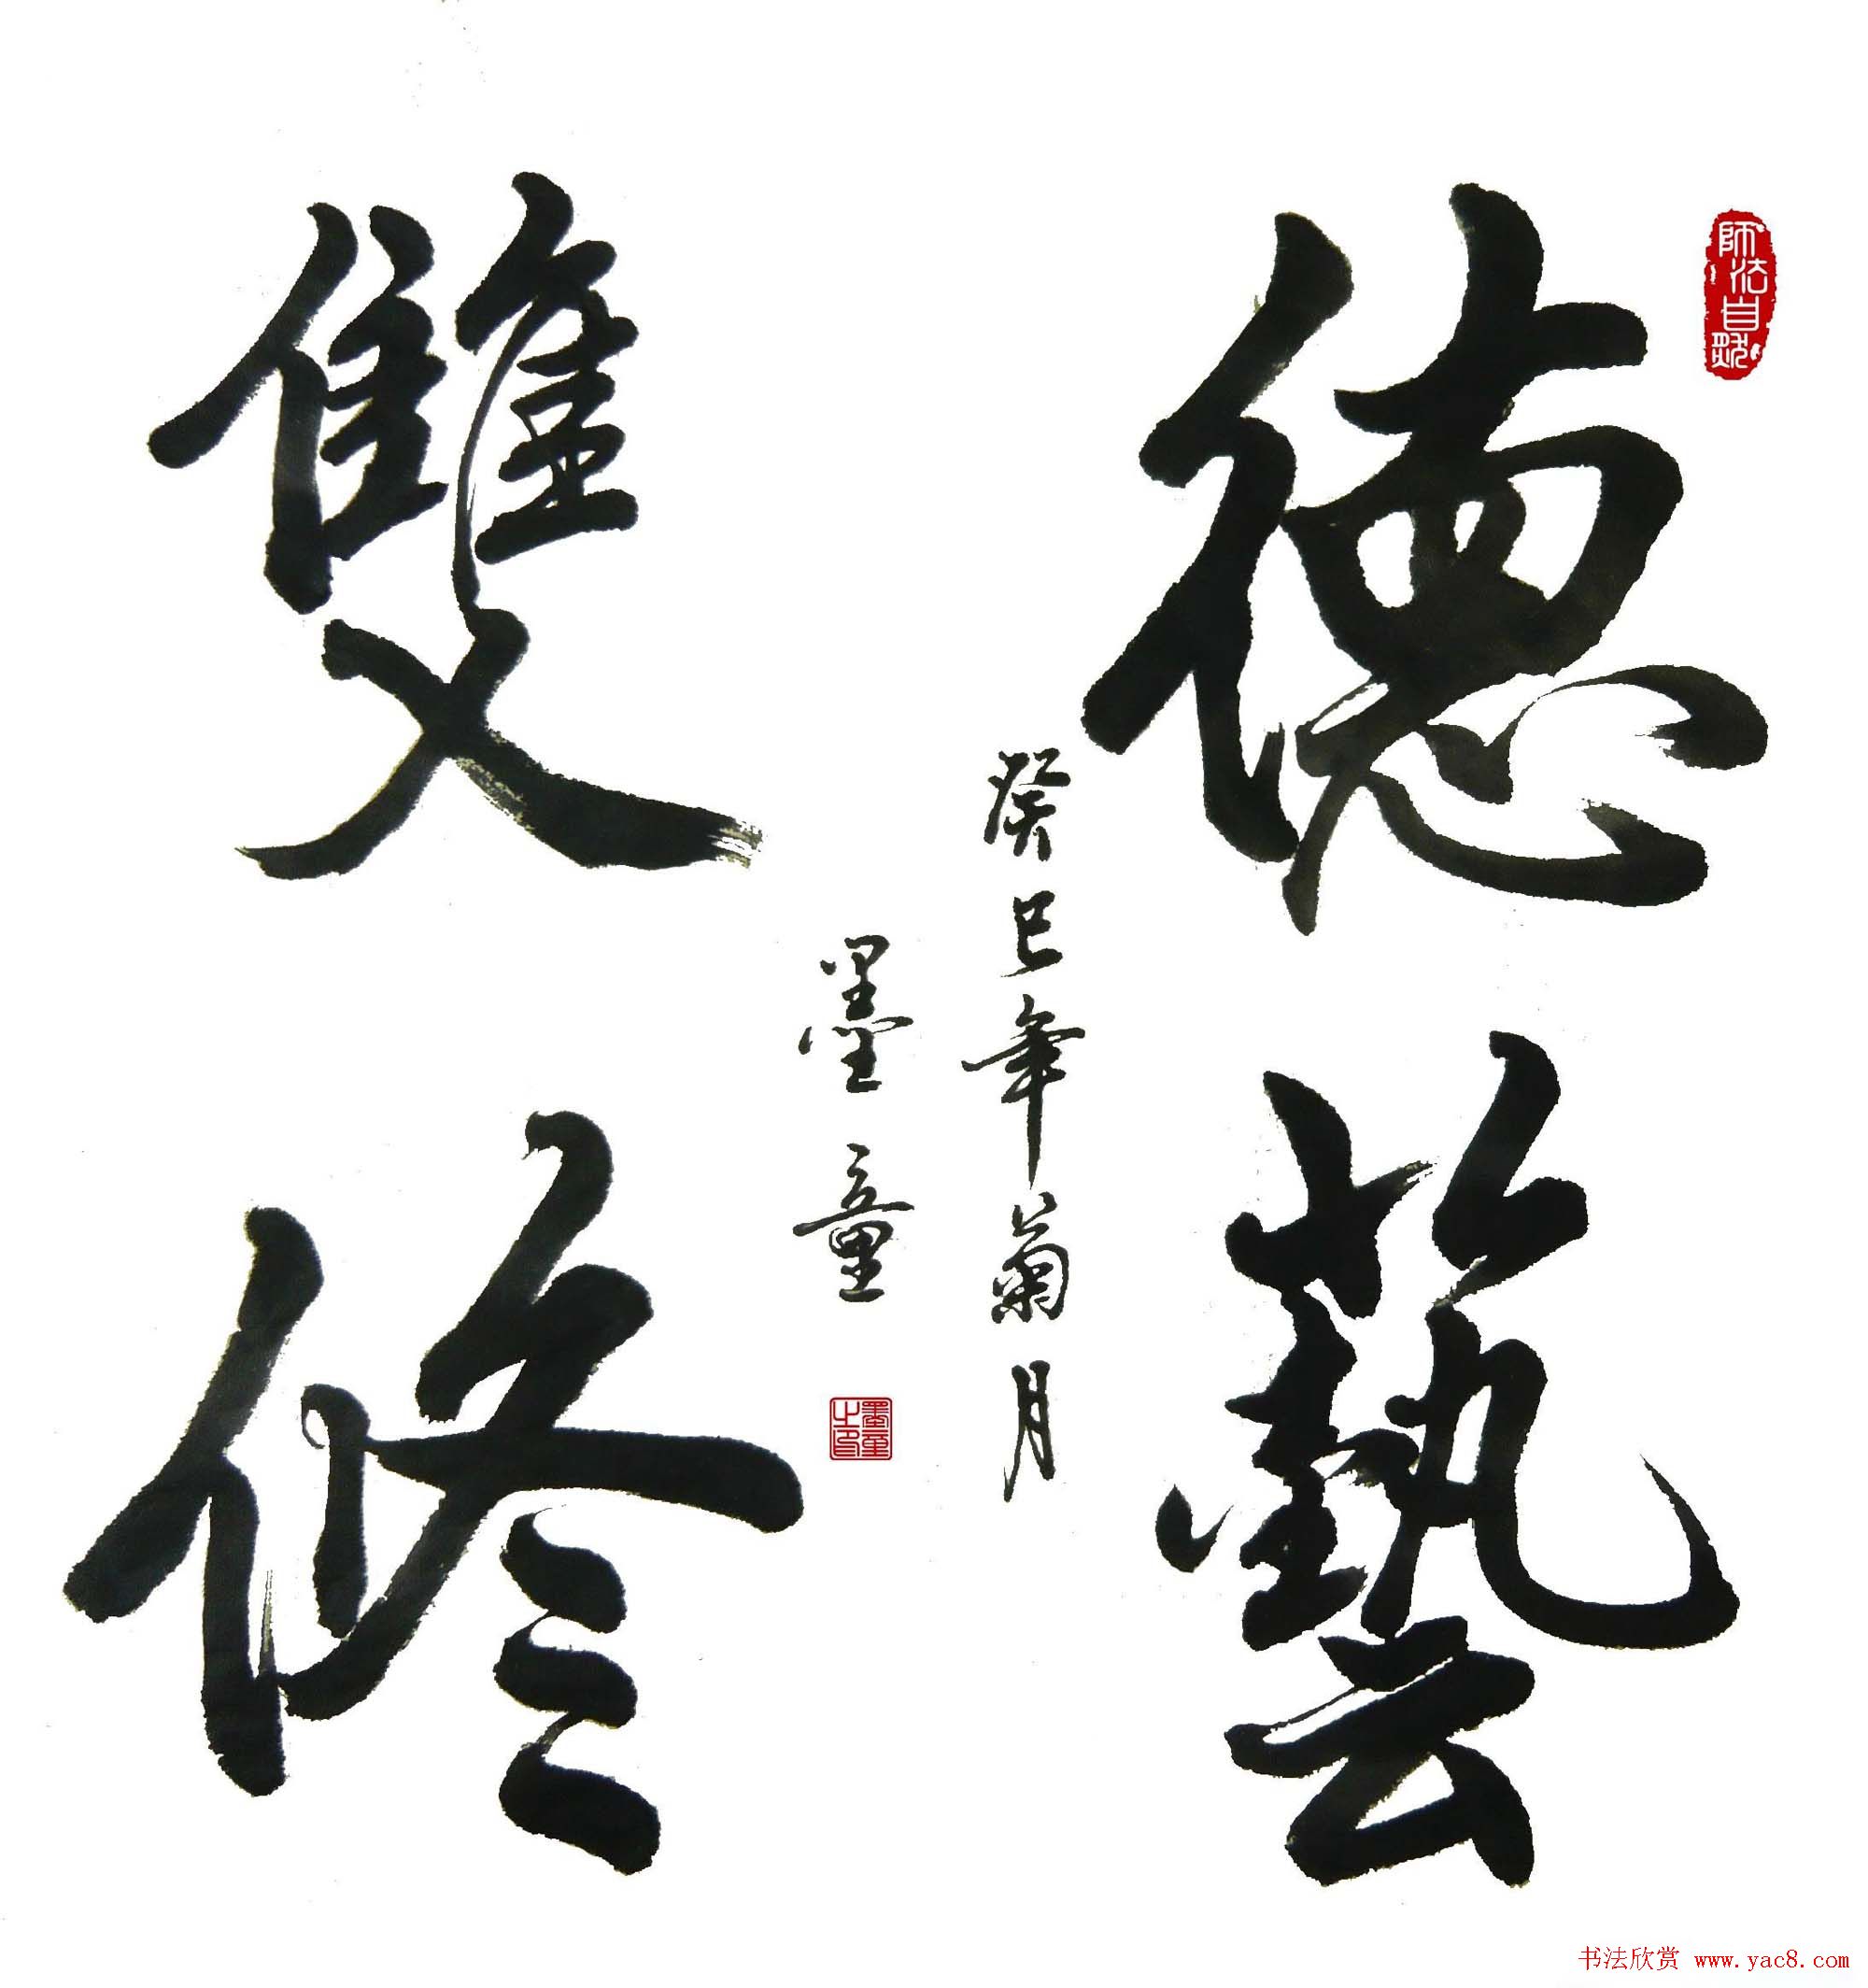 德藝
雙修
癸巳年菊月
墨童
師法自然
墨童之印
书法欣赏 www.yac8.com